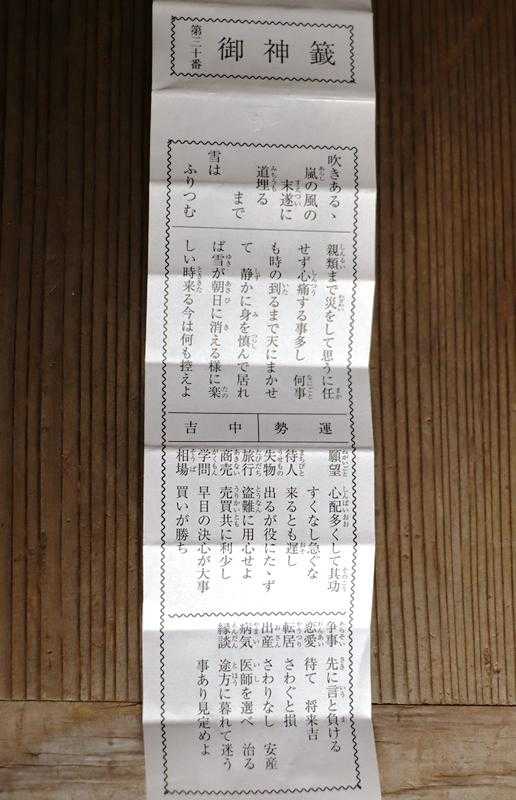 御神籤
第二十番
吹きあるゝ
嵐の風の
末遂に
道埋る
まで
雪は
ふりつむ
親類まで災をして思うに任
せず心痛する事多し 何事
も時の到るまで天にまかせ
て 静かに身を慎んで居れ
ば雪が朝日に消える様に楽
しい時来る今は何も控えよ
運勢 中吉
願望 心配多くして其功
すくなし急ぐな
待人 来るとも遅し
失物 出るが役にたゝず
旅行 盗難に用心せよ
商売 売買共に利少し
学問 早目の決心が大事
相場 買いが勝ち
争事 先に言と負ける
恋愛 待て 将来吉
転居 さわぐと損
出産 さわりなし 安産
病気 医師を選べ 治る
縁談 途方に暮れて迷う
事あり見定めよ